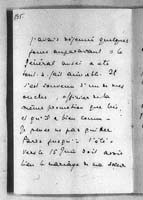 135.
j'avais déjeuné quelques
jours auparavant et le
Général aussi a été
tout à fait aimable. Il
s'est souvenu d'un de mes
oncles, officier de la
même promotion que lui
et qu'il a bien connu.
Je pense ne pas quitter
Paris jusqu'à l'été.
Vers le 15 Juin doit avoir
lieu le mariage de ma sœur